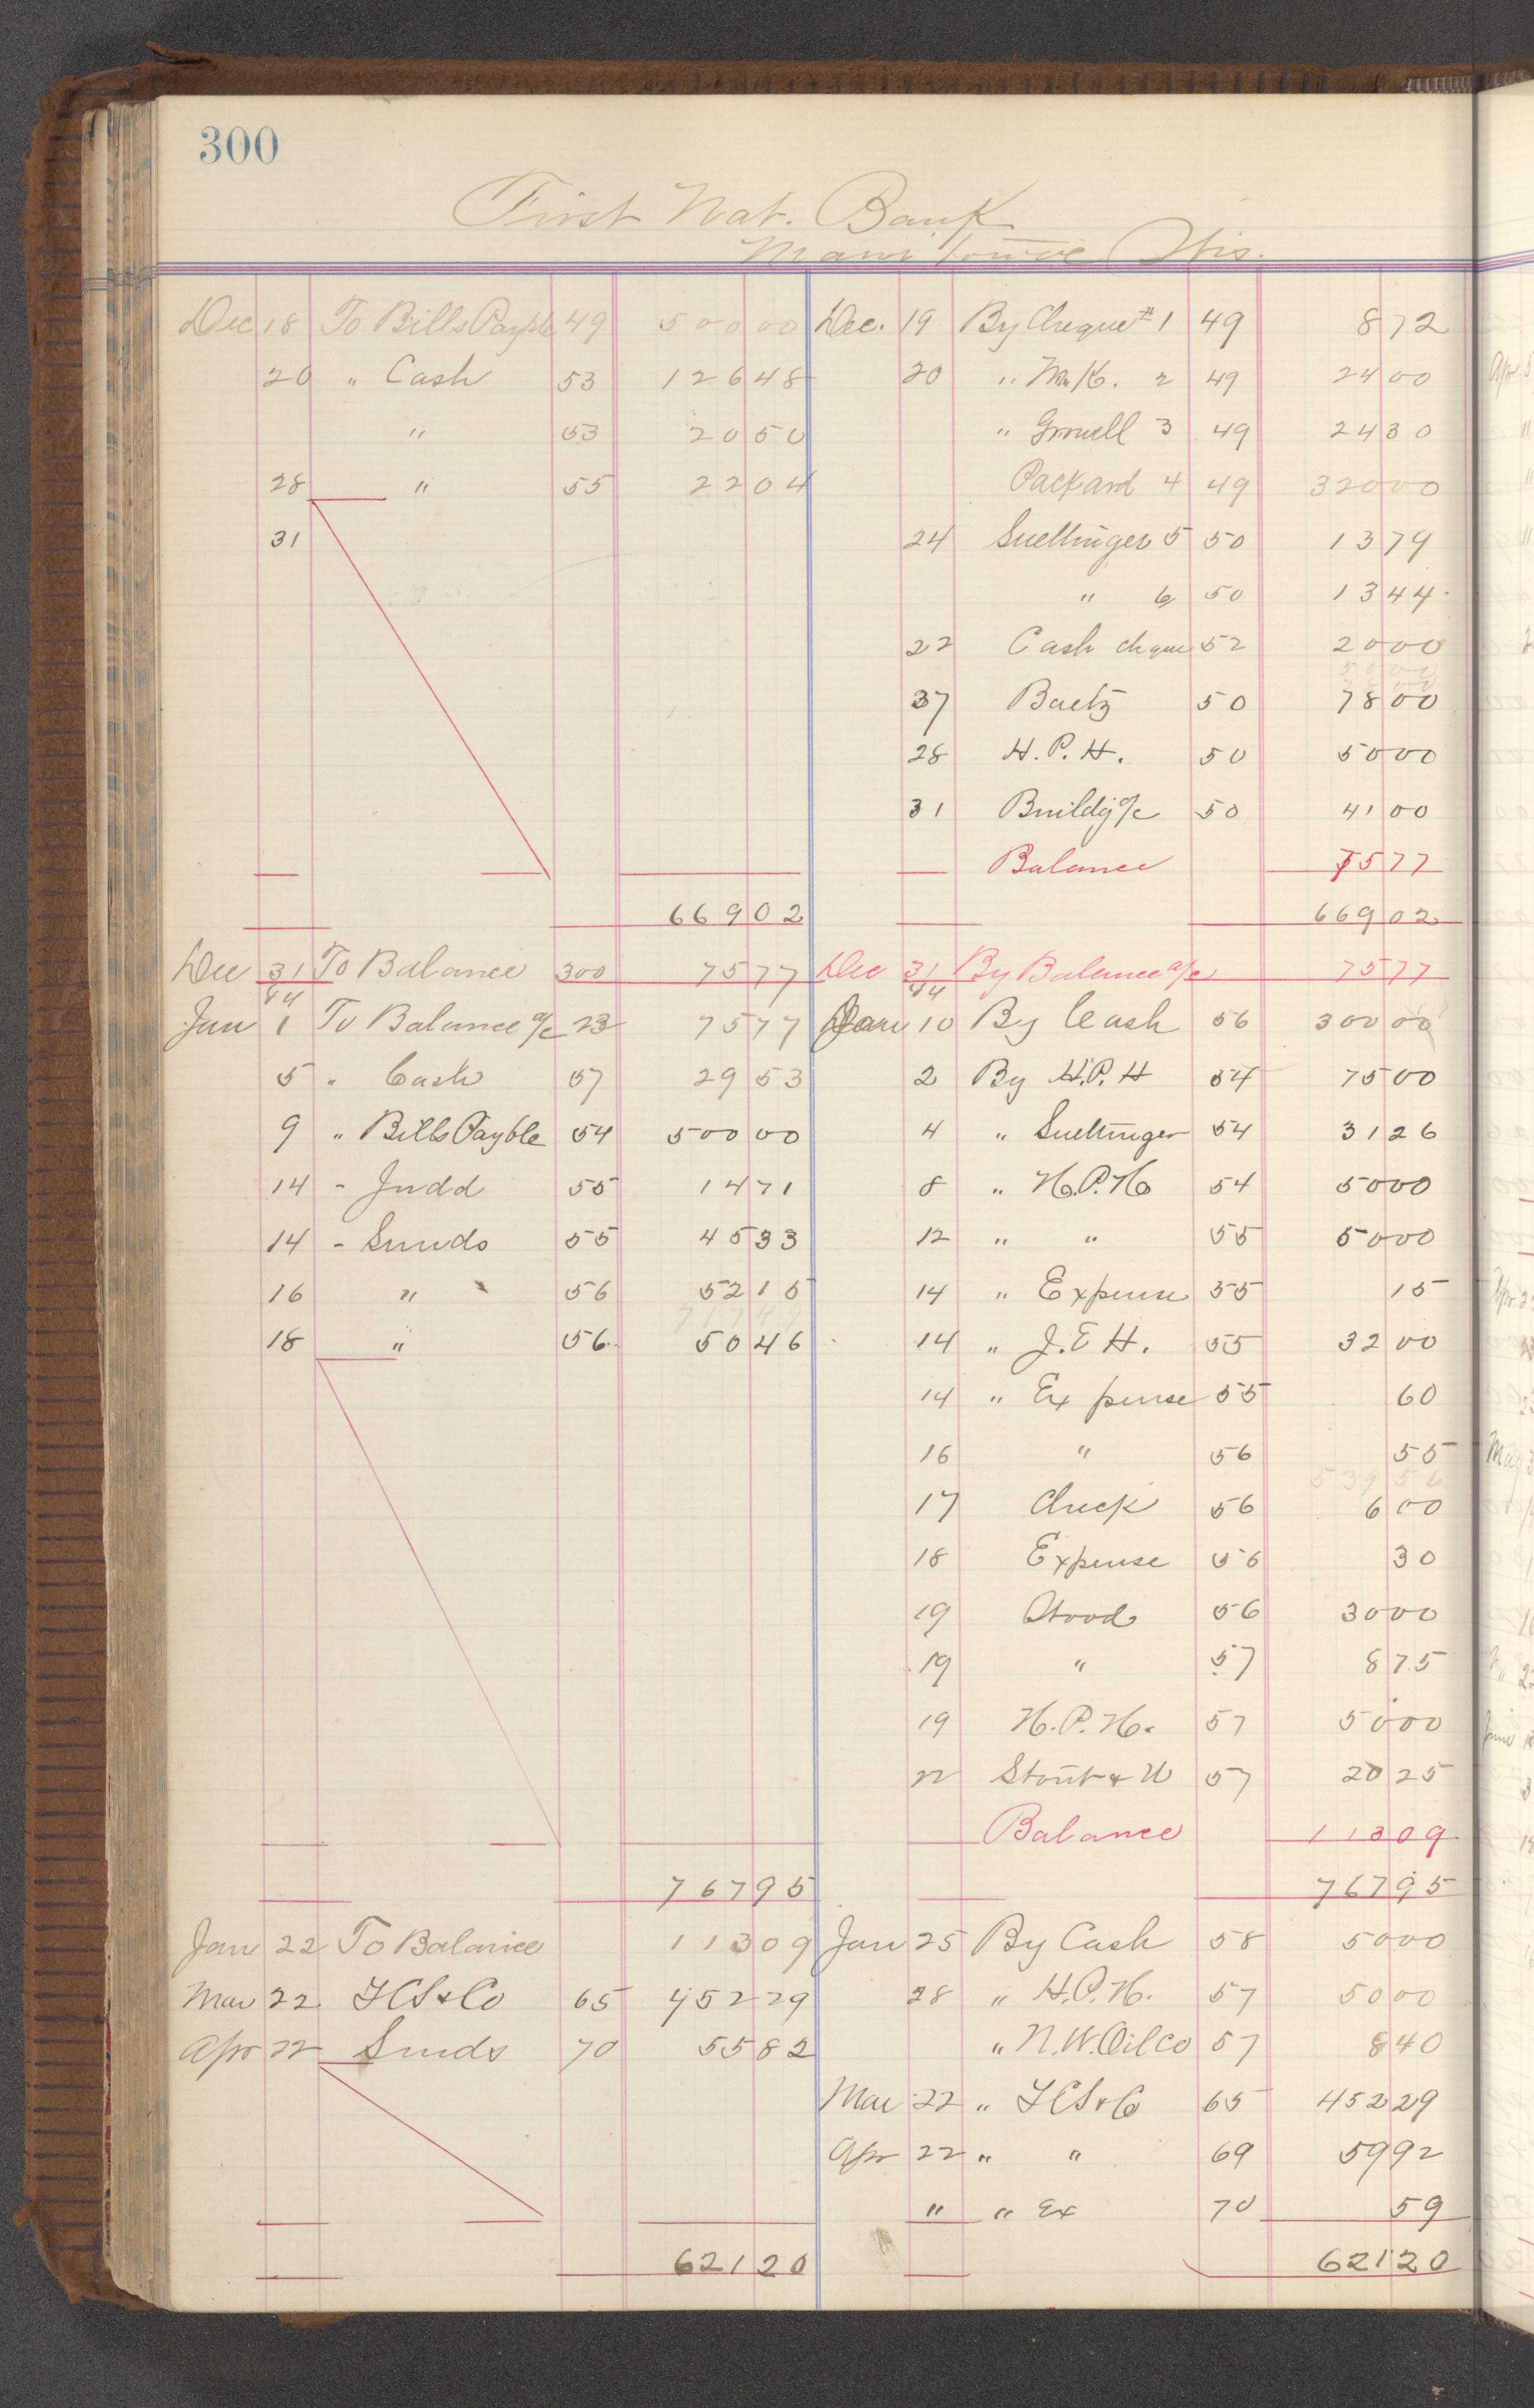 300
First Nat. Bank
Manitowoc Wis.
Dec 18 To Bills Payble 49 500 00 Dec. 19 By Cheque #1 49 8 72
20 " Cash 53 126 48 20 " 2 49 24 00
" 53 20 50 " 3 49 24 30
28 " 55 22 04 Packard 4 49 320 00
31 24 Suettinger 5 50 13 79
" 6 50 13 44
22 Cash cheque 52 20 00
27 Baetz 50 78 00
28 H. P. H. 50 50 00
31 Buildg a/c 50 41 00
Balance 75 77
669 02 669 02
Dec 31 To Balance 300 75 77 Dec 31 By Balance a/c 75 77
Jan 1 To Balance a/c 23 75 77 Jan 10 By Cash 56 300 00
5 " Cash 57 29 53 2 By H.P. H 54 75 00
9 " Bills Payble 54 500 00 4 " Suettinger 54 31 26
14 - Judd 55 14 71 8 " H.P.H 54 50 00
14 - Sunds 55 45 33 12 " " 55 50 00
16 " 56 52 15 14 " Expense 55 15
18 " 56 50 46 14 " J. E H. 55 32 00
14 " Expense 55 60
16 " 56 55
539 56
17 Check 56 6 00
18 Expense 56 30
19 56 30 00
19 " 57 8 75
19 H. P. H. 57 50 00
22 Stout & W 57 20 25
Balance 113 09
767 95 767 95
Jan 22 To Balance 113 09 Jan 25 By Cash 58 50 00
Mar 22 & Co 65 452 29 28 " H.P.H. 57 50 00
Apr 22 Sunds 70 55 82 " N.W. Oil Co 57 8 40
Mar 22 " & Co 65 452 29
Apr 22 " " 69 59 92
" " Ex 70 59
621 20 621 20